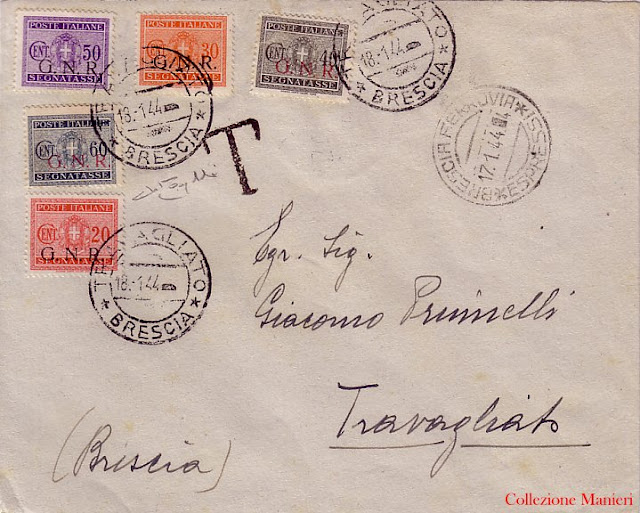 POSTE ITALIANE
CENT. 50
G. N. R.
SEGNATASSE
POSTE ITALIANE
CENT. 30
G. N. R.
SEGNATASSE
POSTE ITALIANE
G. N. R.
SEGNATASSE
TRAVAGLIATO
18.-1.44
* BRESCIA *
TRAVAGLIATO
18.-1.44
* BRESCIA *
BRESCIA FERROVIA * ESPRESSI *
17.1.44
POSTE ITALIANE
CENT. 60
G. N. R.
SEGNATASSE
T
POSTE ITALIANE
CENT. 20
G. N. R.
SEGNATASSE
TRAVAGLIATO
18.-1.44
* BRESCIA *
Egr. Sig.
Giacomo Prunelli
Travagliato
(Brescia)
Collezione Manieri